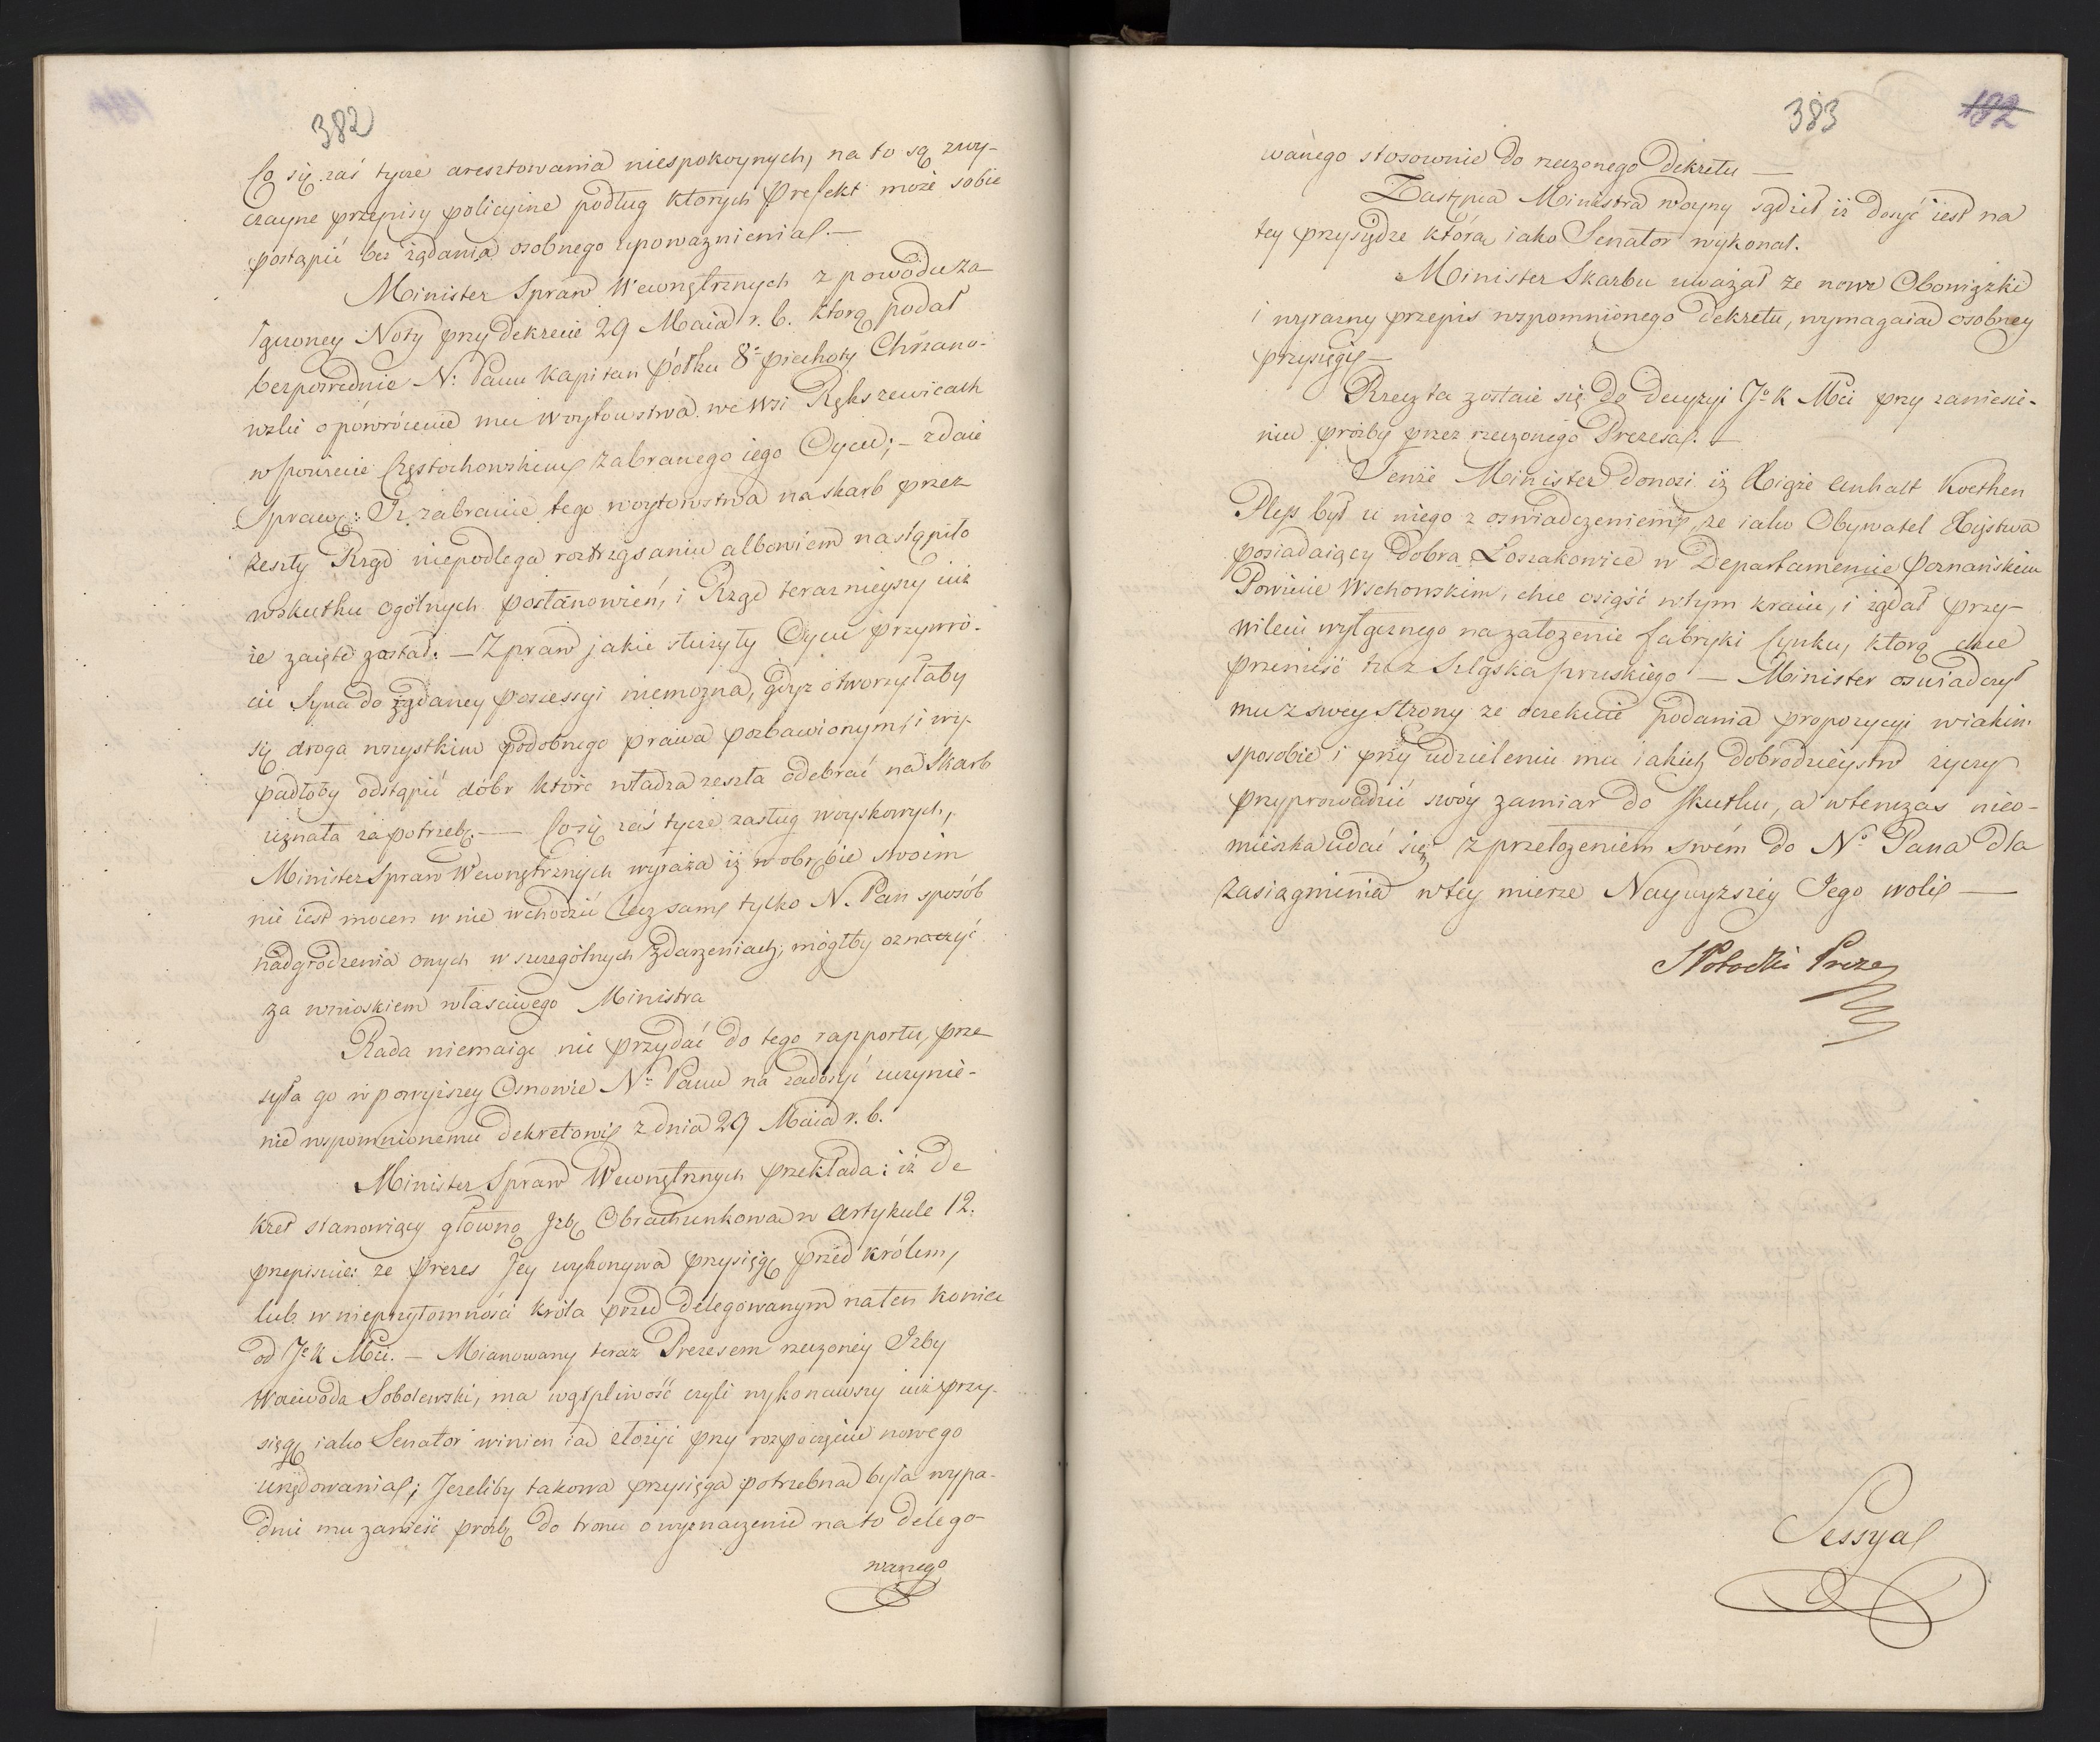 382
Co się zaś tycze aresztowania niespokoynych, na to są zwy-
czayne przepisy policyine podług których Prefekt może sobie
postąpić bez żądania osobnego upoważnienia.—
Minister Spraw Wewnętrznych z powodu za
łączoney Noty przy dekrecie 29 Maia r. b. którą podał
bezpośrednie N: Panu Kapitan półku 8º piechoty Chrzano-
wski o powrócenie mu woytowstwa we wsi Rększewicach
w powiecie Częstochowskim zabranego iego Oycu; – zdaie
Sprawę: Iż zabranie tego woytowstwa na skarb przez
zeszły Rząd niepodlega roztrząsaniu albowiem nastąpiło
w skutku ogólnych postanowień, i Rząd teraznieyszy iuż
ie zaięte zastał. — Z praw jakie służyły Oycu przywró-
cić Syna do żądaney possessyi niemożna, gdyż otworzyłaby
się droga wszystkim podobnego prawa pozbawionym, i wy-
padłoby odstąpić dóbr które władza zeszła odebrać na Skarb
uznała za potrzebę. — Co się zaś tycze zasług woyskowych,
Minister Spraw Wewnętrznych wyraża iż w obrębie swoim
nie iest mocen w nie wchodzić lecz sam tylko N. Pan sposób
nadgrodzenia onych w szczególnych zdarzeniach, mógłby oznaczyć
za wnioskiem właściwego Ministra
Rada niemaiąc nic przydać do tego rapportu, prze
syła go w powyższey Osnowie Nº Panu na zadosyć uczynie-
nie wspomnionemu dekretowi z dnia 29 Maia r. b.
Minister Spraw Wewnętrznych przekłada: iż De
kret stanowiący główną Izbę Obrachunkowa w artykule 12.
przepisuie: że Prezes Jey wykonywa przysięgę przed królem,
lub w nieprzytomności króla przed delegowanym na ten koniec
od Jº K Mci. — Mianowany teraz Prezesem rzeczoney Izby
Woiewoda Sobolewski, ma wątpliwość czyli wykonawszy iuż przy-
sięgę iako Senator winien ią złożyć przy rozpoczęciu nowego
urzędowania; Jeżeliby takowa przysięga potrzebna była wypa-
dnie mu zanieść prozbę do tronu o wyznaczenie na to delego-
wanego
383
182
wanego stosownie do rzeczonego dekretu —
Zastępca Ministra woyny sądził iż dosyć iest na
tey przysiędze która iako Senator wykonał.
Minister Skarbu uważał że nowe Obowiązki
i wyrazny przepis wspomnionego dekretu, wymagaią osobney
przysięgi —
Rzecz ta zostaie się do decyzyi Jº K Mci przy zaniesie-
niu prozby przez rzeczonego Prezesa. —
Tenże Minister donosi iż Xiąże Anhalt Koethen
Pless był u niego z oswiadczeniem, że iako Obywatel Xięstwa
posiadaiący Dobra Loszakowice w Departamencie Poznańskim
Powiecie Wschowskim, chce osiąść w tym kraiu, i żądał przy-
wileiu wyłącznego na założenie fabryki Cynku, którą chce
przenieść tu z Szląska pruskiego — Minister oswiadczył
mu z swey strony że oczekuie podania propozycyi w iakim
sposobie i przy udzieleniu mu iakich dobrodzieystw życzy
przyprowadzić swóy zamiar do skutku, a wtenczas nieo-
mieszka udać się z przełożeniem swém do Nº Pana dla
zasiągnienia w tey mierze Naywyższéy Jego woli —
S Potocki Prezes
Sessya